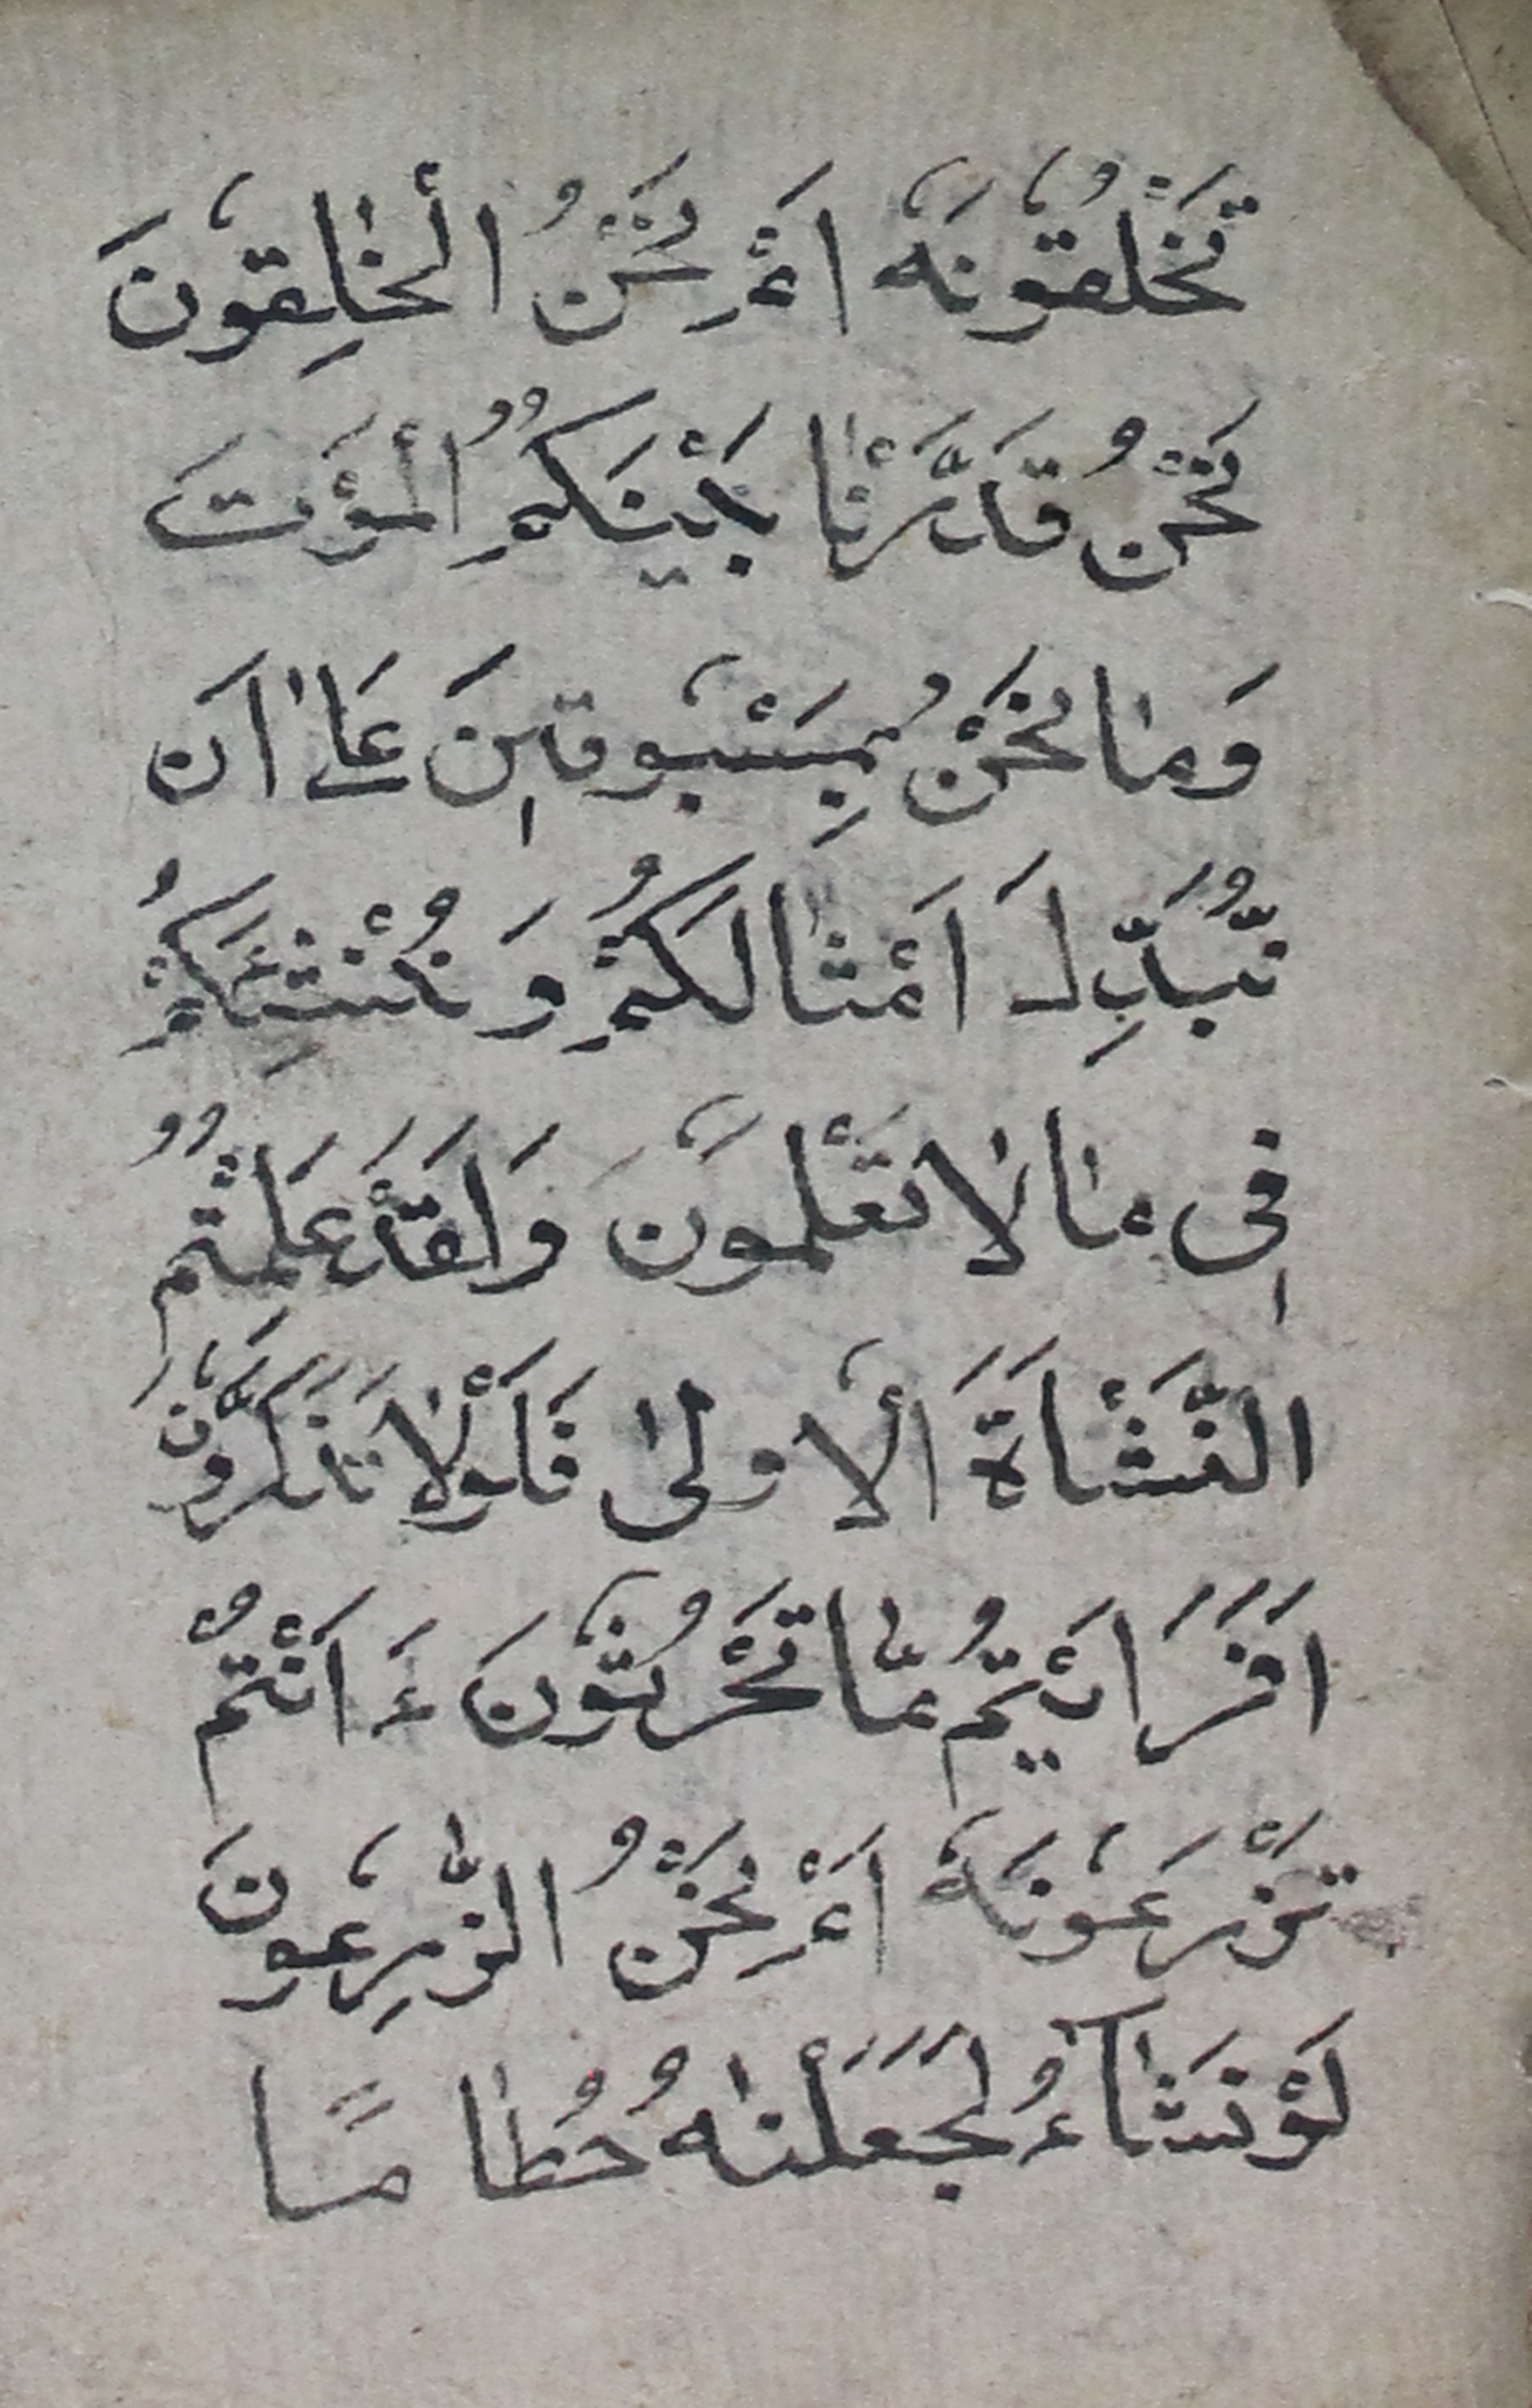 تَخْلُقُوْنَهٗ اَمْ نَحْنُ الْخٰلِقُوْنَ
نَحْنُ قَدَّرْنَا بَيْنَكُمُ الْمَوْتَ
وَمَا نَحْنُ بِمَسْبُوْقِيْنَ عَلٰى اَنْ
نُّبَدِّلَ اَمْثَالَكُمْ وَ نُنْشِئَكُمْ
فِيْ مَا لَا تَعْلَمُوْنَ وَلَقَدْ عَلِمْتُمُ
النَّشْاَةَ الْاُوْلٰى فَلَوْلَا تَذَكَّرُوْنَ
اَفَرَاَيْتُمْ مَّا تَحْرُثُوْنَ ءَاَنْتُمْ
تَزْرَعُوْنَهٗ اَمْ نَحْنُ الزّٰرِعُوْنَ
لَوْ نَشَآءُ لَجَعَلْنٰهُ حُطَامًا